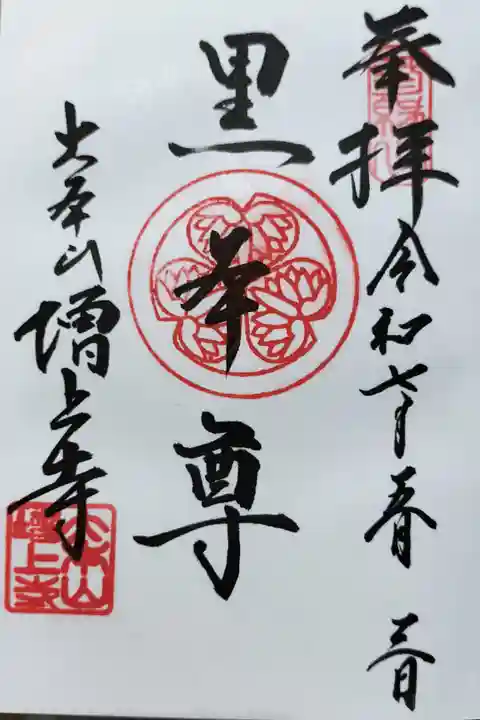 奉拝
令和七年春 三日
黒本尊
大本山増上寺
大本山
増上寺